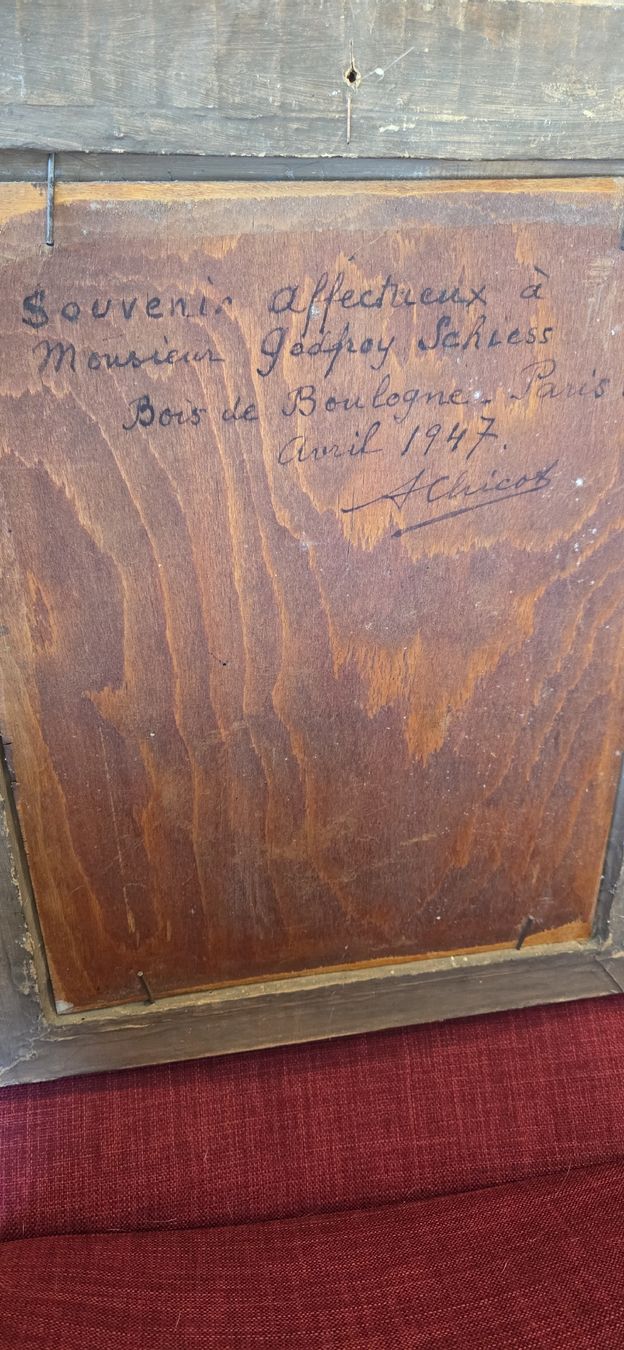 Souvenir affectueux à
Monsieur Godfroy Schiess
Bois de Boulogne - Paris
Avril 1947.
AChicot